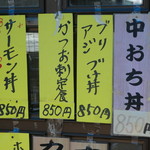 中おち丼
850円
ブリ
アジ丼
850円
かつお刺定食
850円
サーモン丼
850円